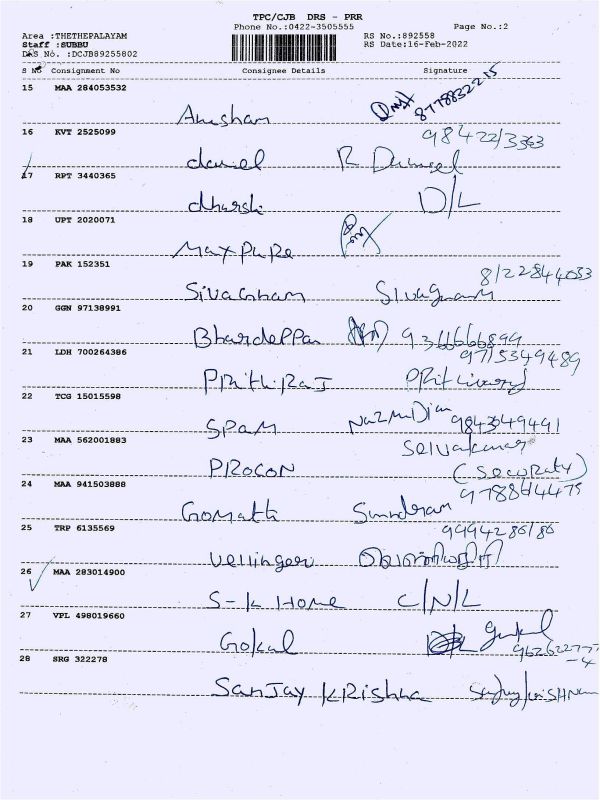 TPC/CJB DRS - PRR
Phone No.:0422-3505555 Page No.:2
Area :THETHEPALAYAM RS No.:892558
Staff :SUBBU RS Date:16-Feb-2022
DRS No. :DCJB89255802
S No Consignment No Consignee Details Signature
15 MAA 284053532
8778832215
16 KVT 2525099
daniel R
17 RPT 3440365
dharshi D/L
18 UPT 2020071
Maxpure
19 PAK 152351
8122844033
Sivagnam Sivagnam
20 GGN 97138991
Bhardeppan 9366666899
21 LDH 700264386
9715349489
Prithiraj
22 TCG 15015598
SPAM
23 MAA 562001883
Selvakumar
PROCON (Security)
24 MAA 941503888
Gomathi
25 TRP 6135569
9994286186
Vellingeri
26 MAA 283014900
S-K Home C/N/L
27 VPL 498019660
Gokul Gokul
28 SRG 322278
Sanjay Krishna